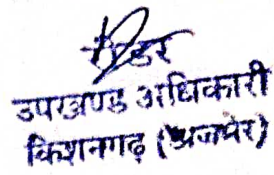 रीडर
उपखण्ड अधिकारी
किशनगढ़ (अजमेर)